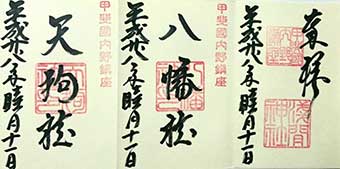 奉拝
淺間神社
平成廿八年睦月十一日
甲斐國内野鎮座
八幡社
平成廿八年睦月十一日
甲斐國内野鎮座
天狗社
平成廿八年睦月十一日